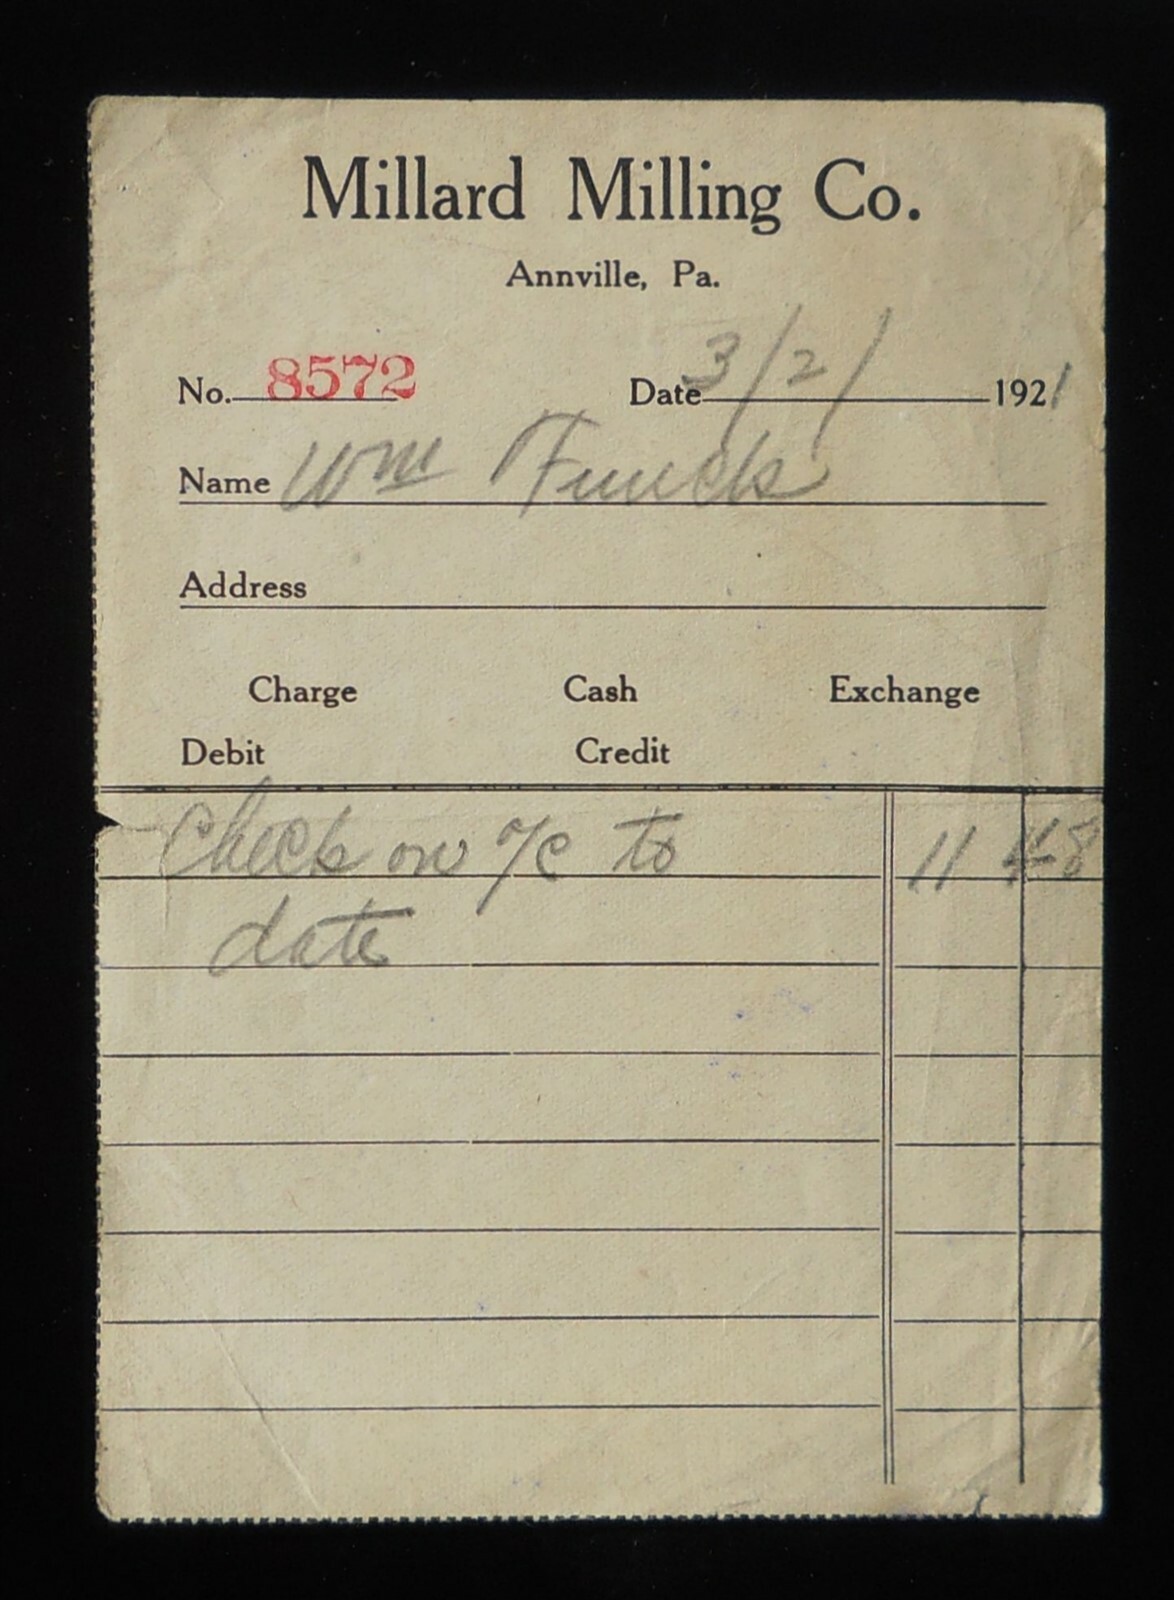 Millard Milling Co.
Annville, Pa.
No. 8572 Date 3/2/ 1921
Name Wm Funck
Address
Charge Cash Exchange
Debit Credit
Check on a/c to 11 48
date